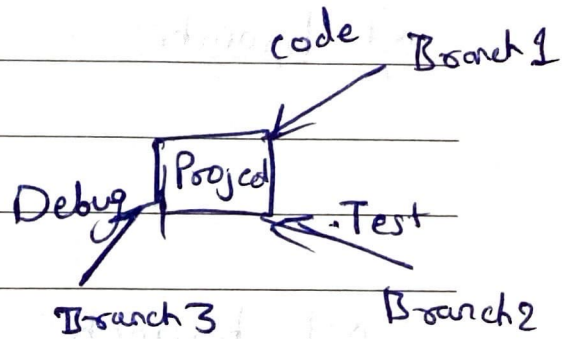 code
Branch 1
Project
Debug
Test
Branch 3
Branch 2